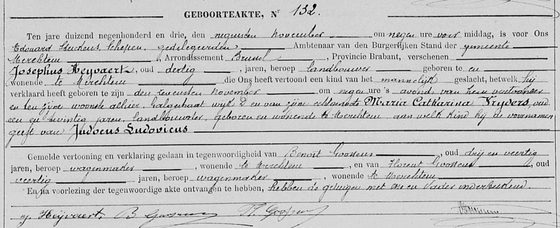 GEBOORTEAKTE, N° 132.
Ten jare duizend negenhonderd en drie, den negenden November om negen ure voor middag, is voor Ons
Edouard Schepen, gedelegeerden Ambtenaar van den Burgerlijken Stand der gemeente
Merchtem, Arrondissement Brussel, Provincie Brabant, verschenen
Josephus Heyvaert, oud dertig jaren, beroep landbouwer geboren te en
wonende te Merchtem die Ons heeft vertoond een kind van het mannelijk geslacht, hetwelk hij
verklaard heeft geboren te zijn den zevensten November om negen ure 's avond, van hem
en ten zijne woonste alhier wijk E en van zijne Maria Catharina Nijders, oud
een en twintig jaren, landbouwster, geboren en wonende te Merchtem, aan welk kind hij de voornamen
geeft van Judocus Ludovicus
Gemelde vertooning en verklaring gedaan in tegenwoordigheid van Benoit Goossens, oud drij en veertig
jaren, beroep wagenmaker, wonende te Merchtem en van Florent Goossens oud
veertig jaren, beroep wagenmaker, wonende te Merchtem
En na voorlezing der tegenwoordige akte ontvangen te hebben, hebben de getuigen met Ons en Vader onderteekend.
J. Heyvaert B. Goossens Fl. Goossens